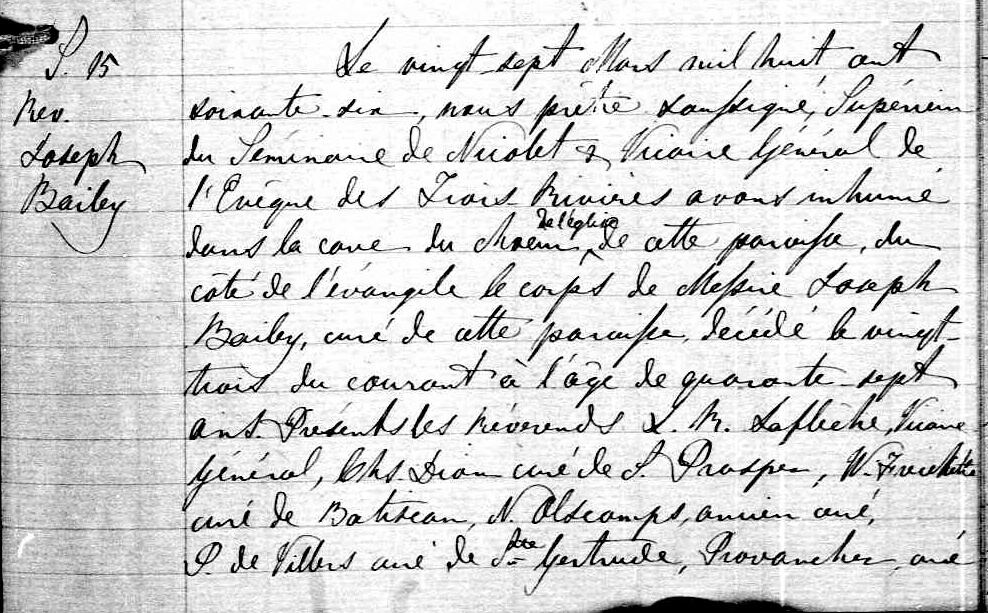 S. 15
Rev.
Joseph
Bailey
Le vingt-sept Mars mil huit cent
soixante-six, nous prêtre soussigné, Supérieur
du Séminaire de Nicolet & Vicaire Général de
l'Evêque des Trois-Rivières avons inhumé
dans la cave du chœur de l'église de cette paroisse, du
côté de l'évangile le corps de Messire Joseph
Bailey, curé de cette paroisse, décédé le vingt-
trois du courant à l'âge de quarante-sept
ans. Présents les Révérends L. R. Laflèche, Vicaire
Général, Chs Dion curé de S. Prosper, W. Fréchette
curé de Batiscan, N. Olscamps, ancien curé,
P. de Villers curé de Ste Gertrude, Provancher, curé